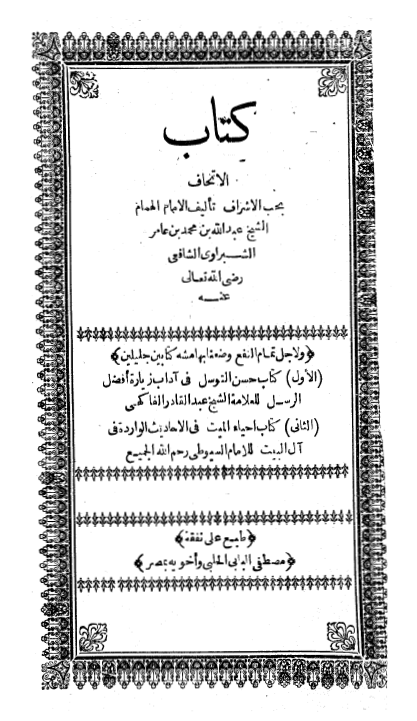 كتاب
الاتحاف
بحب الاشراف تأليف الامام الهمام
الشيخ عبدالله بن محمد بن عامر
الشبراوى الشافعى
رضى الله تعالى
عنه
﴿ولاجل تمام النفع وضعنا بهامشه كتابين جليلين﴾
(الأول) كتاب حسن التوسل فى آداب زيارة أفضل
الرسل للعلامة الشيخ عبد القادر الفاكهى
(الثانى) كتاب احياء الميت فى الاحاديث الواردة فى
آل البيت للامام السيوطى رحم الله الجميع
﴿طبع على نفقة﴾
﴿مصطفى البابى الحلبى وأخويه بمصر﴾